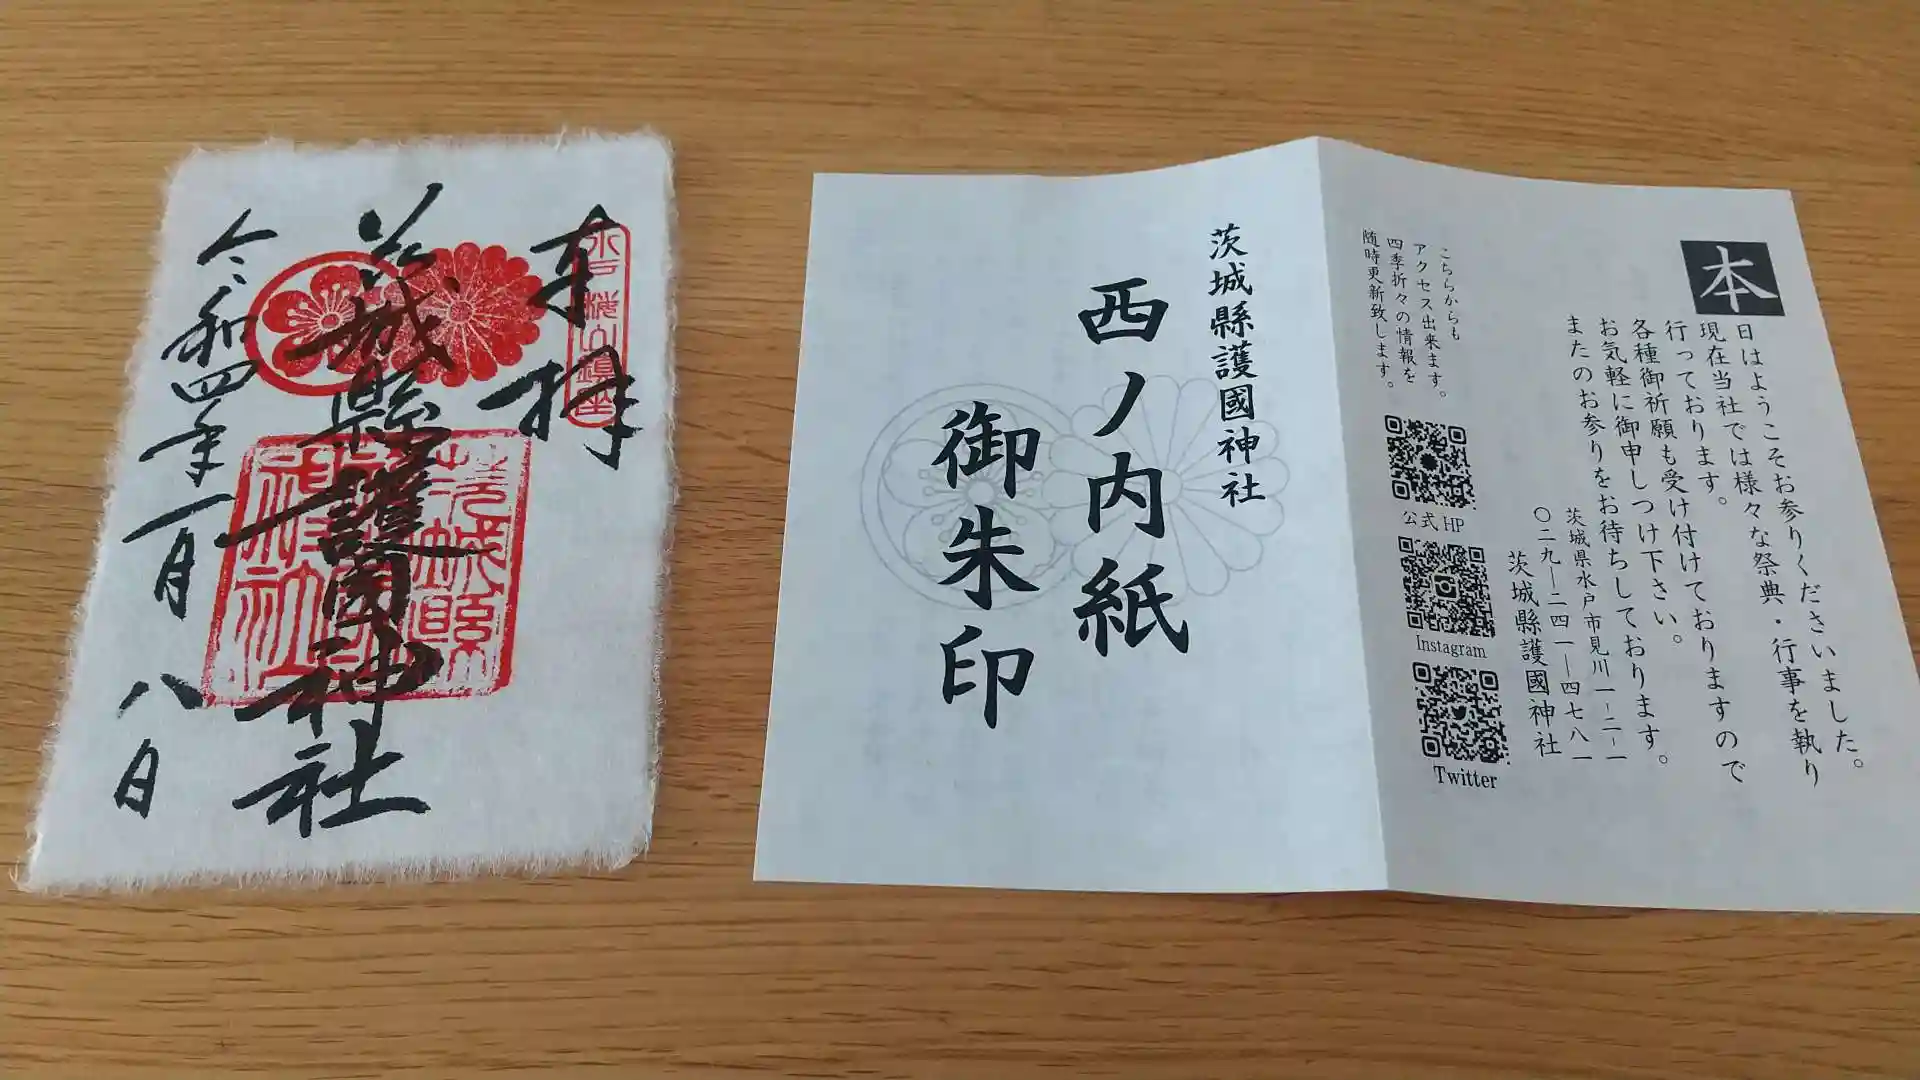 奉拝
水戸桜山鎮座
茨城縣護國神社
令和四年一月八日
茨城縣護國神社
西ノ内紙
御朱印
本
日はようこそお参りくださいました。
現在当社では様々な祭典・行事を執り
行っております。
各種御祈願も受け付けておりますので
お気軽に御申しつけ下さい。
またのお参りをお待ちしております。
茨城県水戸市見川一-二-一
〇二九―二四一―四七八一
茨城縣護國神社
こちらからも
アクセス出来ます。
四季折々の情報を
随時更新致します。
公式HP
Instagram
Twitter